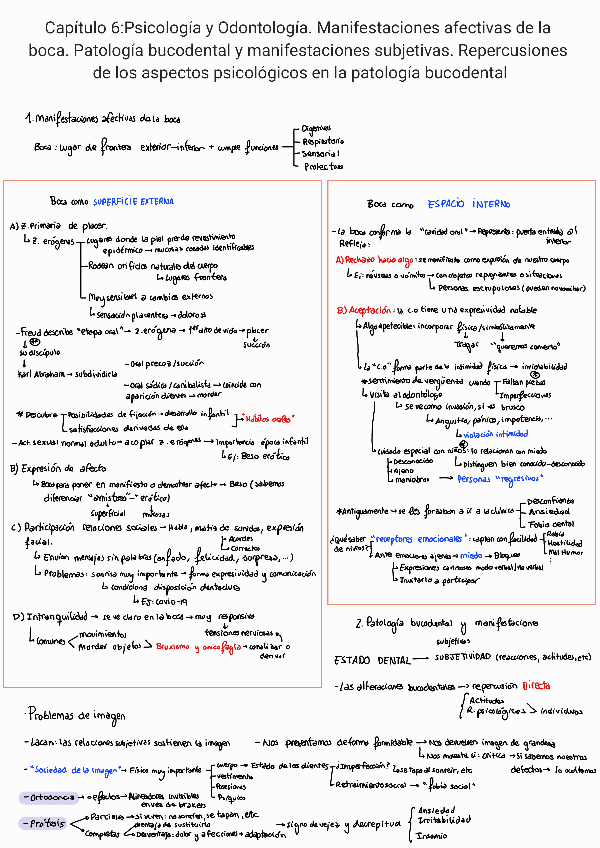 Capítulo 6:Psicología y Odontología. Manifestaciones afectivas de la
boca. Patología bucodental y manifestaciones subjetivas. Repercusiones
de los aspectos psicológicos en la patología bucodental
1. Manifestaciones afectivas de la boca
Boca: lugar de frontera exterior-interior + cumple funciones
Digestivas
Respiratoria
Sensorial
Protectora
Boca como SUPERFICIE EXTERNA
A) Z. Primaria de placer.
Z. erógenas
Lugares donde la piel pierde revestimiento
epidérmico → mucosas rosadas identificables
Rodean orificios naturales del cuerpo
Lugares frontera
Muy sensibles a cambios externos
sensación placentera → dolorosa
- Freud describe "etapa oral" → Z. erógena → 1er año de vida → placer
succión
su discípulo
Karl Abraham → subdividirla
- Oral precoz/succión
- Oral sádica/canibalista → coincide con
aparición dientes → morder
* Descubre
Posibilidades de fijación → desarrollo infantil
satisfacciones derivadas de esa
"Hábitos orales"
- Act. sexual normal adulto → acoplar z. erógenas → Importancia época infantil
Ej: Beso erótico
B) Expresión de afecto
Boca para poner en manifiesto o demostrar afecto → Beso (sabemos
diferenciar "amistoso" - "erótico)
superficial
mucosas
C) Participación relaciones sociales → Habla, matriz de sonidos, expresión
facial.
Acordes
Correctos
Envían mensajes sin palabras (enfado, felicidad, sorpresa, ...)
Problemas: sonrisa muy importante → forma expresividad y comunicación
condiciona disposición dentadura
EJ: Covid-19
D) Intranquilidad → se ve claro en la boca → muy responsiva
tensiones nerviosas
Comunes
movimientos
Morder objetos
Bruxismo y onicofagia → canalizar o
derivar
Boca como ESPACIO INTERNO
- La boca conforma la "cavidad oral" → Representa: puerta entrada al
interior
Refleja:
A) Rechazo hacia algo: se manifiesta como expulsión de nuestro cuerpo
Ej: náuseas o vómitos → con objetos repugnantes o situaciones
Personas escrupulosas (pueden no vomitar)
B) Aceptación: la c.o tiene una expresividad notable
Algo apetecible: incorporar física/simbólicamente
Tragar
"queremos comerlo"
La "C.O" forma parte de la intimidad física → inviolabilidad
* sentimiento de vergüenza cuando
Faltan piezas
Imperfecciones
Visita al odontólogo
se ve como invasión, si es brusco
Angustia, pánico, impotencia, ...
violación intimidad
cuidado especial con niños: lo relacionan con miedo
Desconocido
Ajeno
maniobras
Distinguen bien conocido-desconocido
Personas "regresivas"
* Antiguamente → se les forzaban a ir a la clínica
Desconfianza
Ansiedad
Fobia dental
¿Qué saber
de niños?
"receptores emocionales": captan con facilidad
Rabia
Hostilidad
Mal Humor
Ante emociones ajenas → miedo → Bloqueo
Expresiones con nuestro modo verbal/no verbal
Invitarlo a participar
2. Patología bucodental y manifestaciones
subjetivas
ESTADO DENTAL → SUBJETIVIDAD (reacciones, actitudes, etc)
- Las alteraciones bucodentales → repercusión Directa
Actitudes
R. psicológicas
individuos
- Problemas de imagen
- Lacan: las relaciones subjetivas sostienen la imagen
- Nos presentamos de forma formidable → Nos devuelven imagen de grandeza
Nos mostraría sí: crítica → Si sabemos nuestros
defectos → lo ocultamos
- "Sociedad de la imagen" → Físico muy importante
cuerpo → Estado de los dientes
Vestimenta
Posesiones
Psíquico
¿Imperfección?
Se tapa al sonreír, etc
Retraimiento social → "fobia social"
- Ortodoncia → ⊕ efectos → Alineadores invisibles
en vez de brakets
- Prótesis
Parciales → Si verían: no sonríen, se tapan, etc
ventaja de sustituirlo
Completas → Desventaja: dolor y afecciones → adaptación
→ signo de vejez y decrepitud
Ansiedad
Irritabilidad
Insomnio